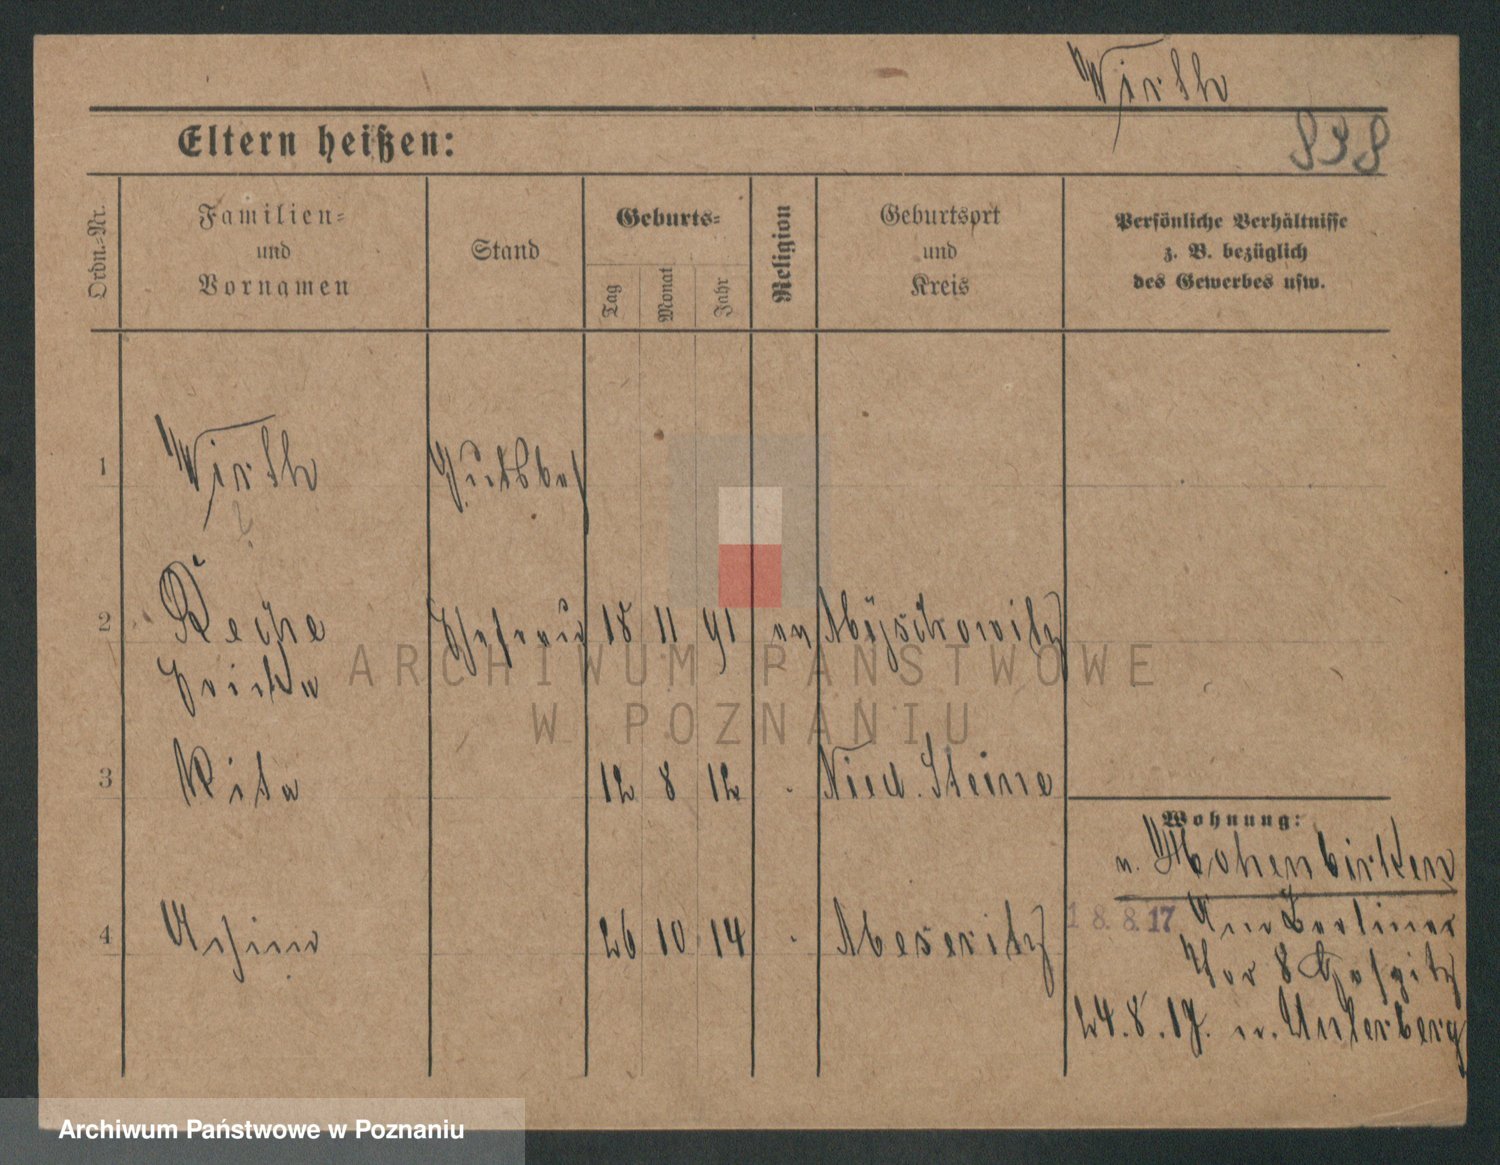 Wirth
838
Eltern heißen:
Ordn.-Nr.
Familien-
und
Vornamen
Stand
Geburts-
Tag
Monat
Jahr
Religion
Geburtsort
und
Kreis
Persönliche Verhältnisse
z. B. bezüglich
des Gewerbes usw.
1 Wirth Gutsbes
2 Reche Ehefrau 18 11 91 ev Myschowitz
Ericka
3 Rita 12 8 12 Nied. Steine
4 Achim 26 10 14 Meseritz
Wohnung:
n. Hohenbirken
18.8.17 Am Berliner
Tor 8 Hospitz
24.8.17. n. Unterberg
ARCHIWUM PAŃSTWOWE
W POZNANIU
Archiwum Państwowe w Poznaniu